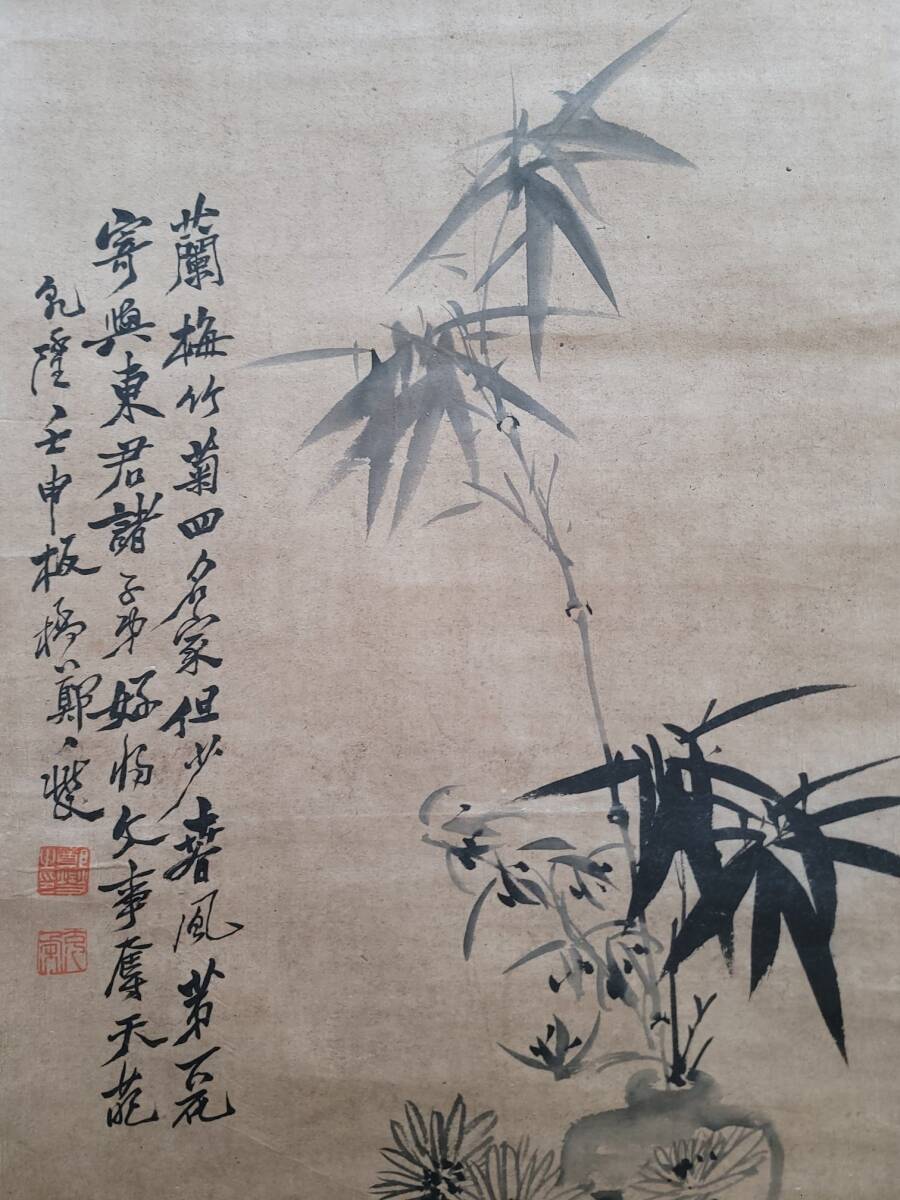 蘭梅竹菊四名家但少春風第一花
寄與東君諸子弟好將文事奪天葩
乾隆壬申板橋鄭燮
鄭燮
克柔